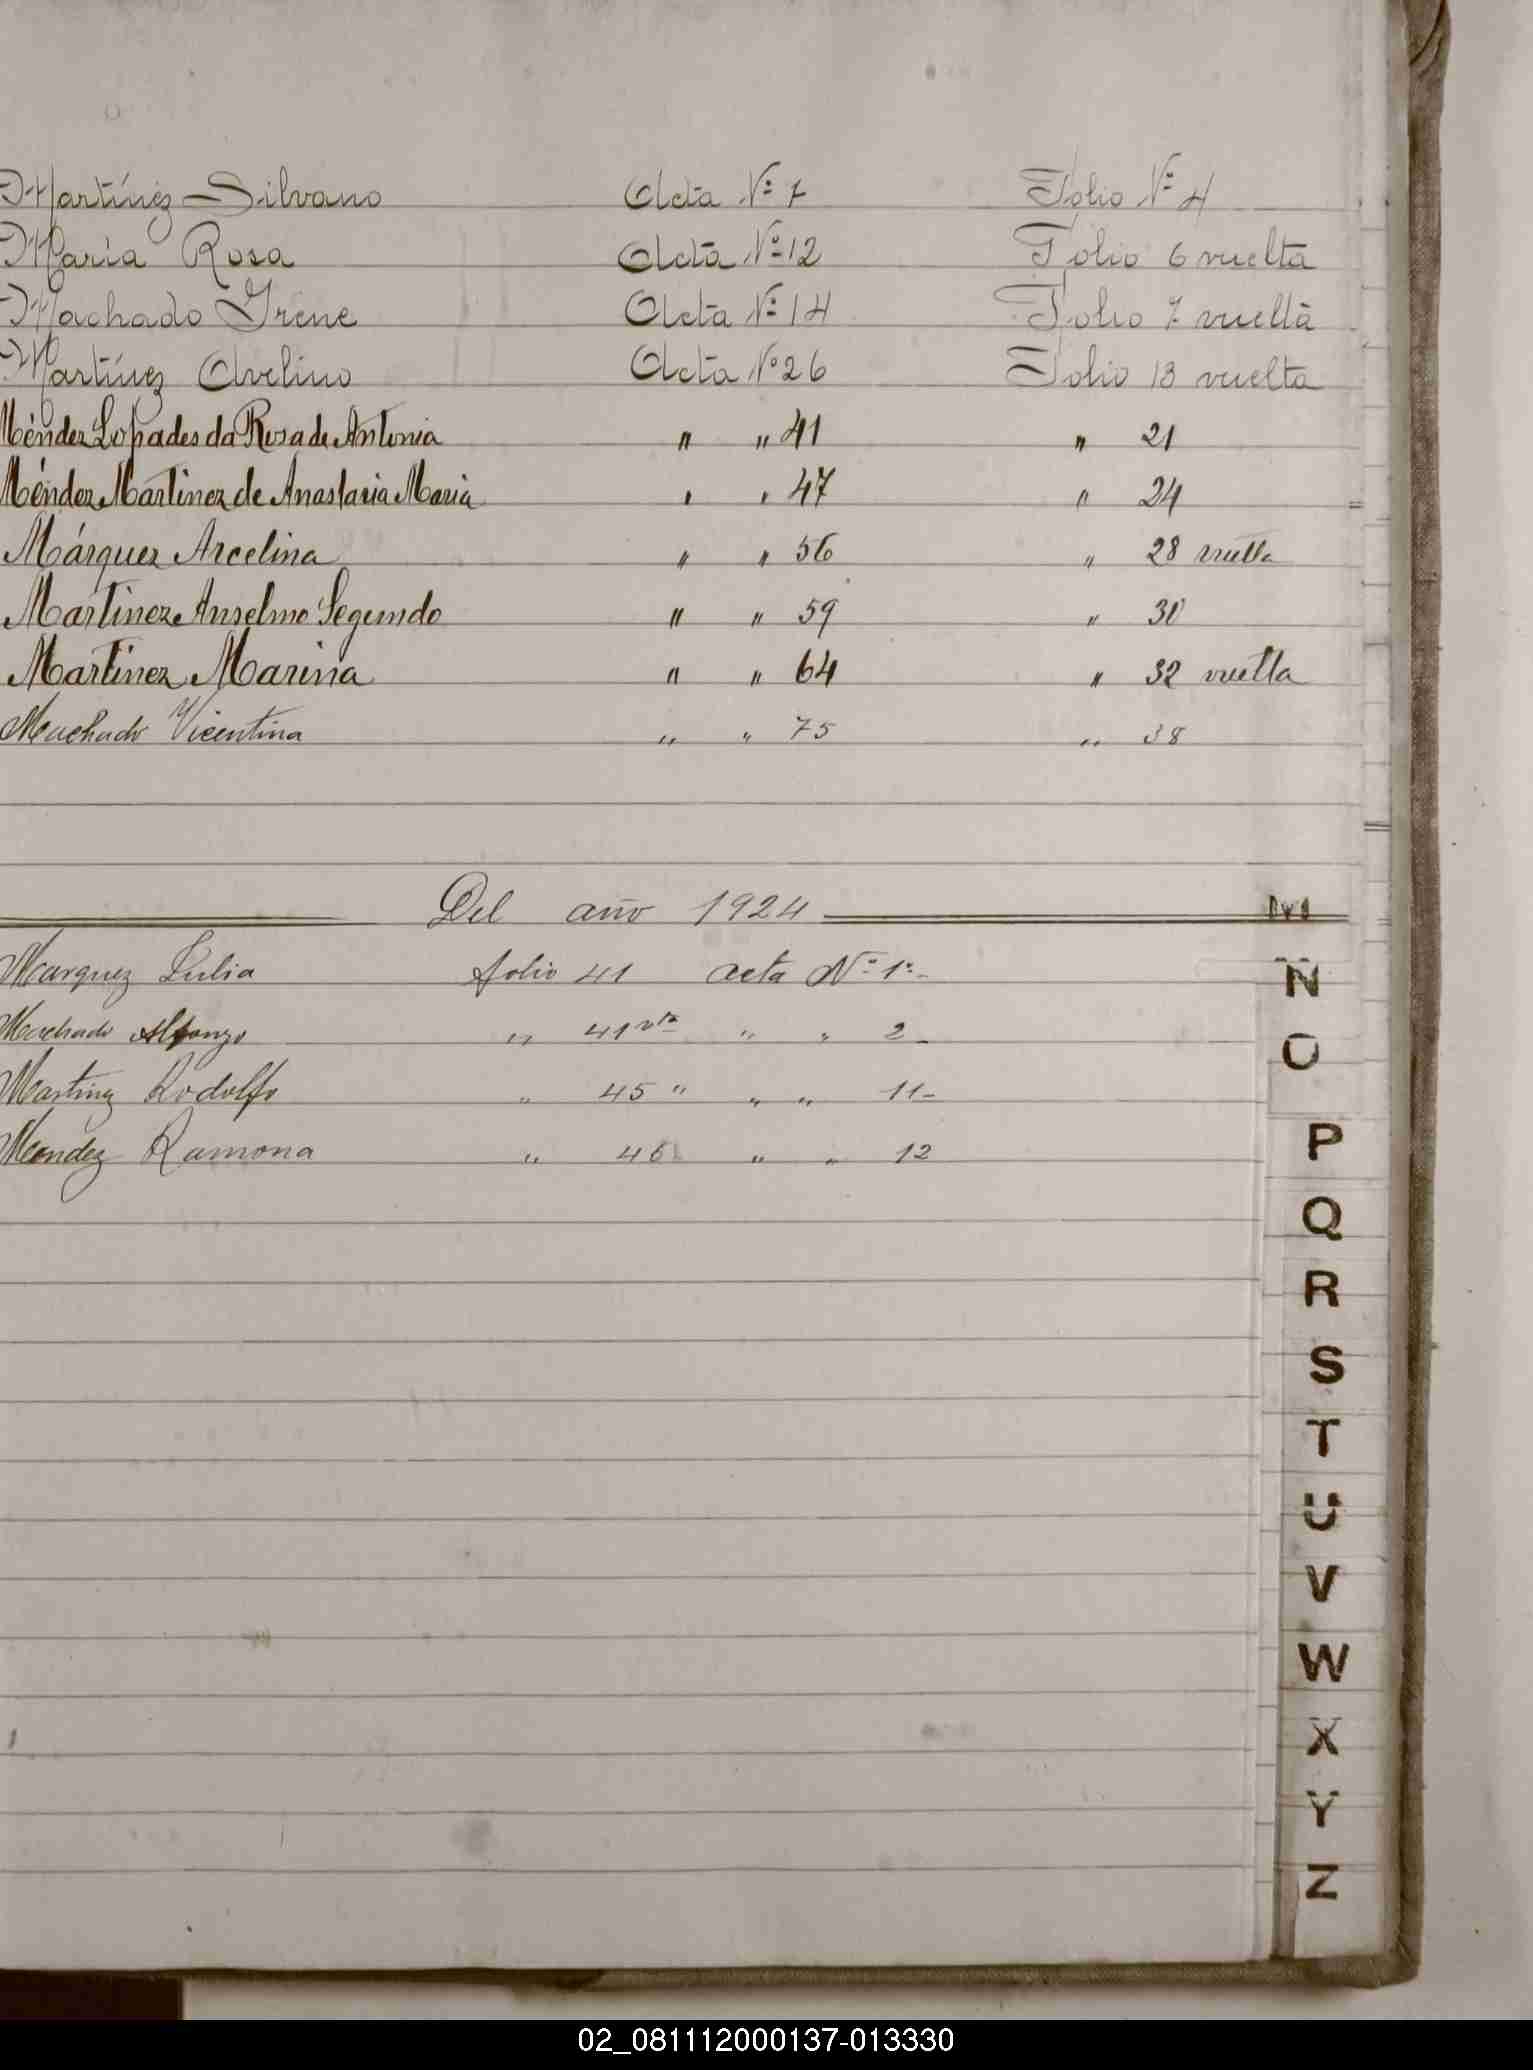 Martínez Silvano Acta Nº 7 Folio Nº 4
María Rosa Acta Nº 12 Folio 6 vuelta
Machado Irene Acta Nº 14 Folio 7 vuelta
Martínez Avelino Acta Nº 26 Folio 13 vuelta
Méndez Lopades da Rosa de Antonia " " 41 " 21
Méndez Martinez de Anastasia Maria " " 47 " 24
Márquez Arcelina " " 56 " 28 vuelta
Martinez Anselmo Segundo " " 59 " 30
Martinez Marina " " 64 " 32 vuelta
Machado Vicentina " " 75 " 38
Del año 1924
Marquez Julia folio 41 acta Nº 1º-
Machado Alfonzo " 41 vta " " 2-
Martinez Rodolfo " 45 " " " 11-
Mendez Ramona " 46 " " 12
N
O
P
Q
R
S
T
U
V
W
X
Y
Z
02_081112000137-013330